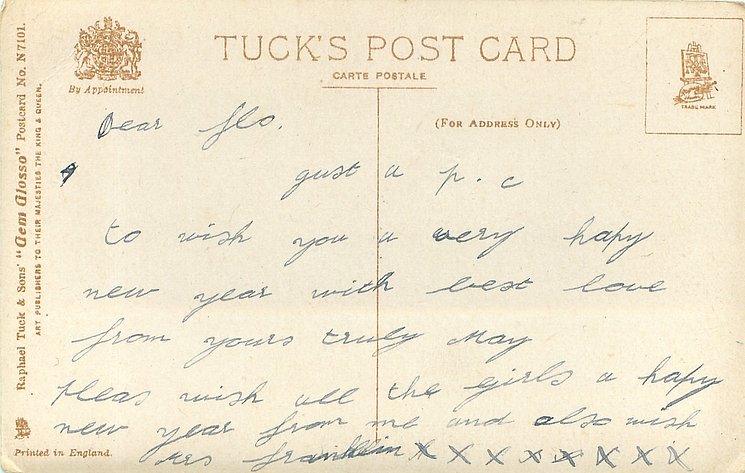 TUCK'S POST CARD
CARTE POSTALE
By Appointment
(FOR ADDRESS ONLY)
TRADE MARK
Raphael Tuck & Sons' "Gem Glosso" Postcard No. N 7101.
ART PUBLISHERS TO THEIR MAJESTIES THE KING & QUEEN.
Dear flo.
gust a p.c
to wish you a very hapy
new year with best love
from yours truly May
pleas wish all the girls a hapy
new year from me and also wish
Mrs franklin x x x x x x x x x
Printed in England.